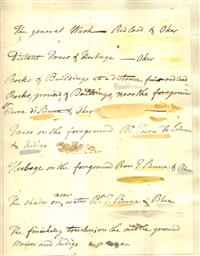 The general Wash – Red Lead & Oker
Distant Trees & Herbage – Oker
Rocks & Buildings at a distance
Rocks, ground & Buildings, near the foreground
Terra di Sienna & Oker
Trees on the foreground Bt. Terra di Sienna
& Indigo
Herbage on the foreground Raw T. Sienna & Blue
The shades near water Bt. T. Sienna & Blue
The finishing touches in the middle ground
Umber and Indigo